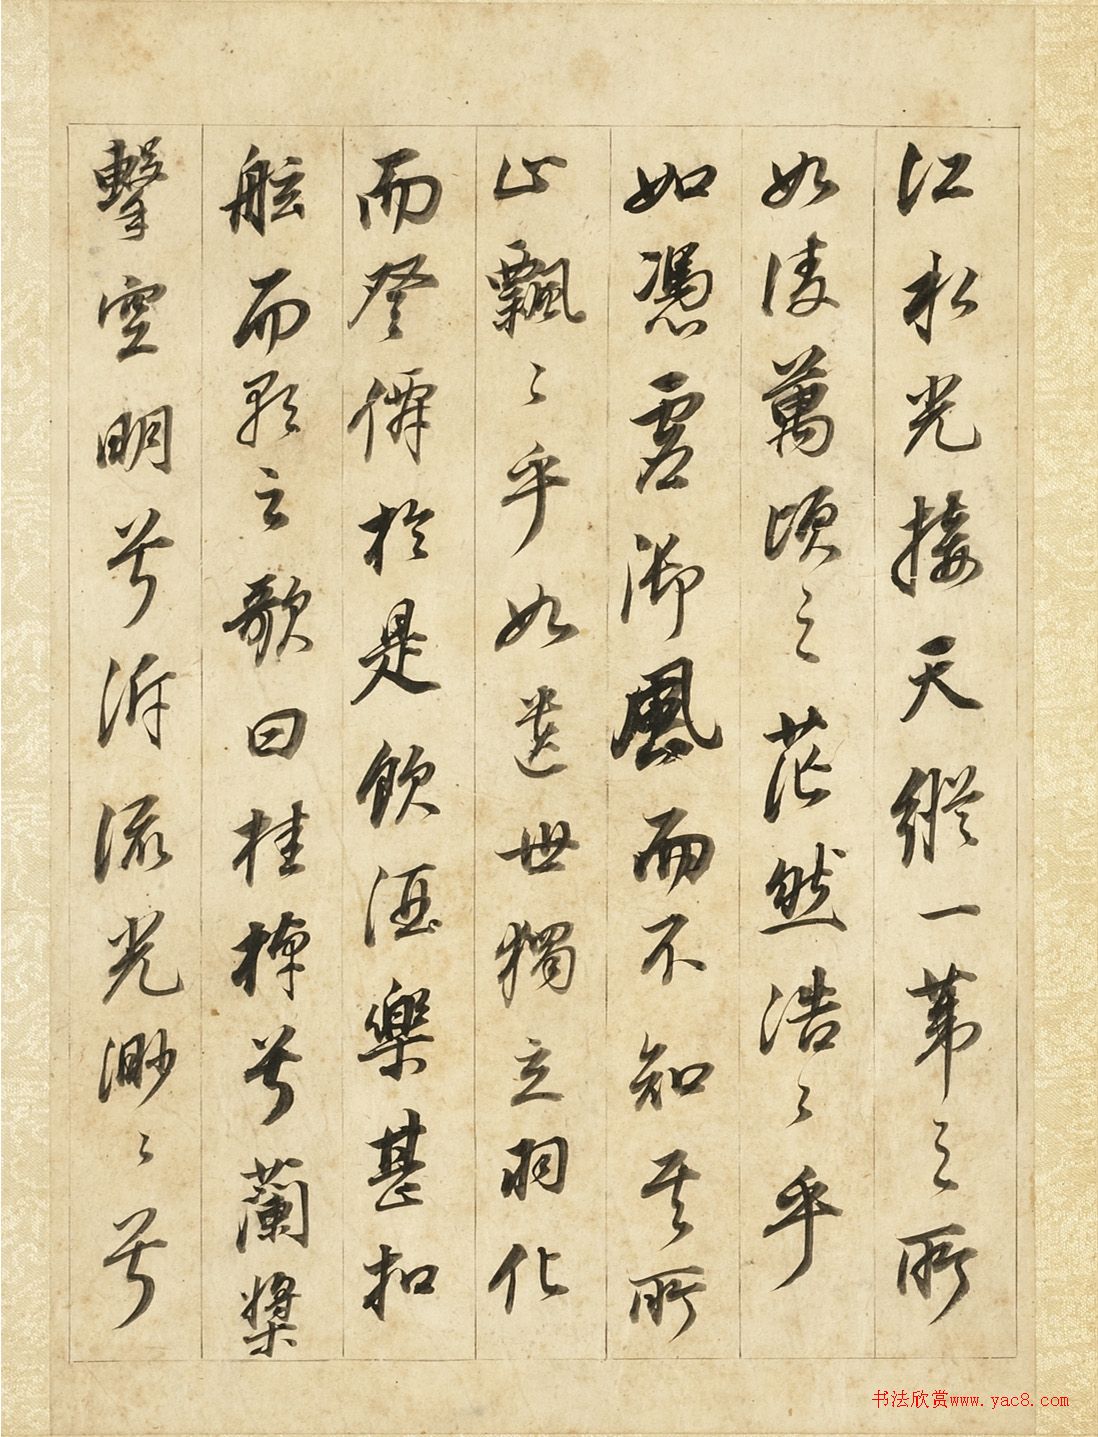 江水光接天縱一葦之所
如凌萬頃之茫然浩〻乎
如馮虛御風而不知其所
止飄〻乎如遺世獨立羽化
而登僊於是飲酒樂甚扣
舷而歌之歌曰桂棹兮蘭槳
擊空明兮泝流光渺〻兮
书法欣赏www.yac8.com